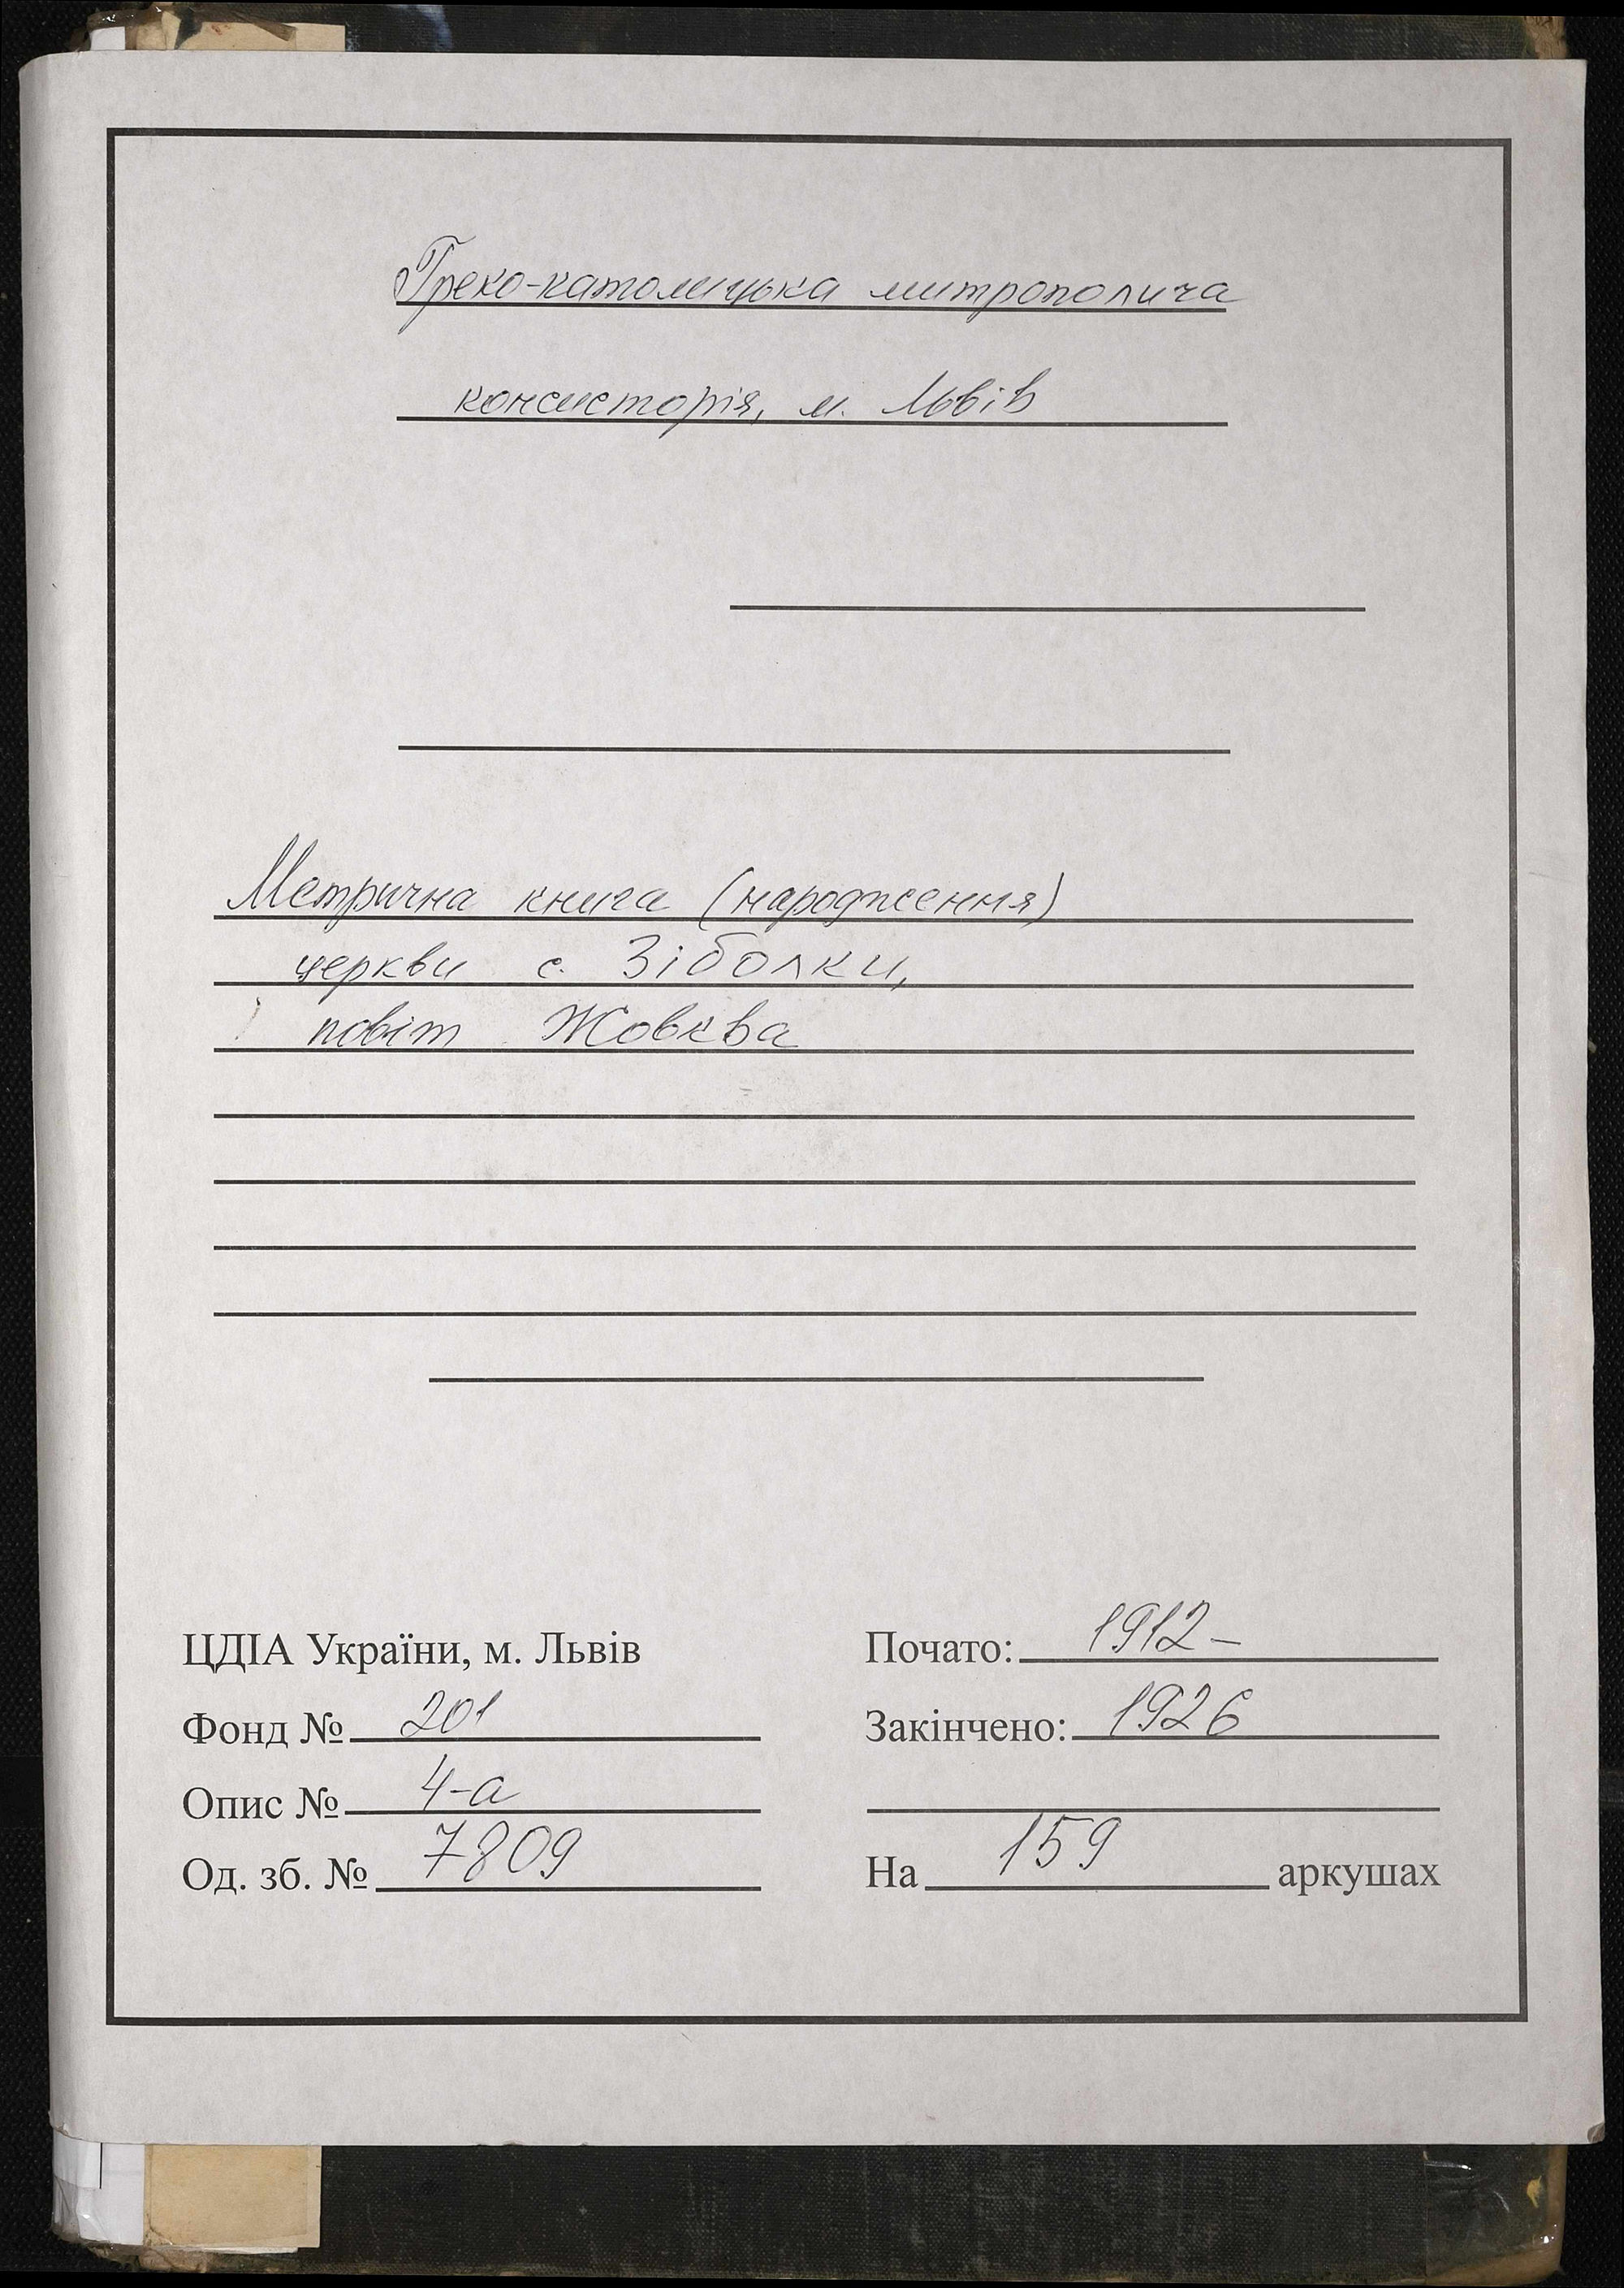 Греко-католицька митрополича
консисторія, м. Львів
Метрична книга (народження)
церкви с. Зіболки,
повіт Жовква
ЦДІА України, м. Львів
Фонд № 201
Опис № 4-а
Од. зб. № 7809
Почато: 1912-
Закінчено: 1926
На 159 аркушах